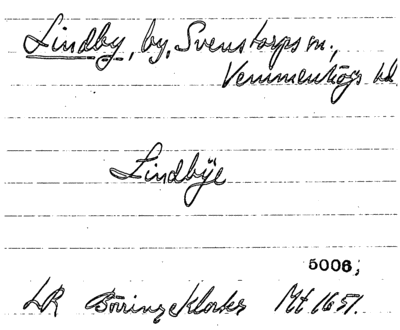 Lindby, by, Svenstorps sn.,
Vemmenhögs hd
Lindbÿe
5006;
LR Börringe Kloster Mt 1651.